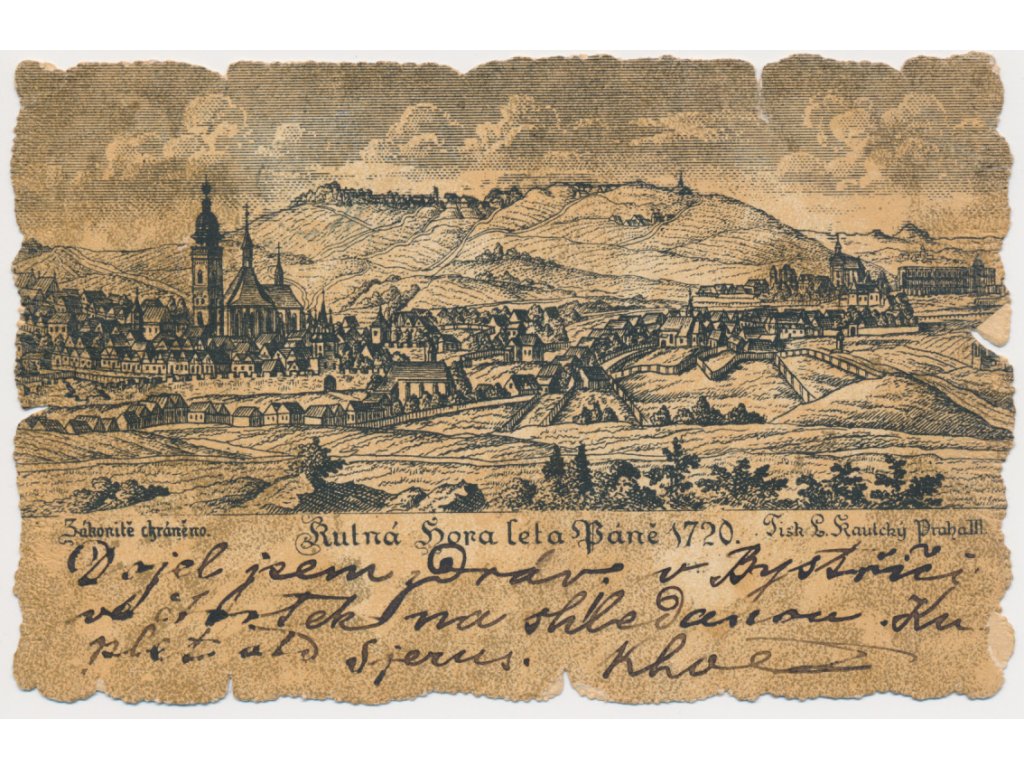 Zákonitě chráněno. Kutná Hora leta Páně 1720. Tisk L. Kautcký Praha III.
Dojel jsem zdráv. v Bystřici
ve čtvrtek na shledanou.